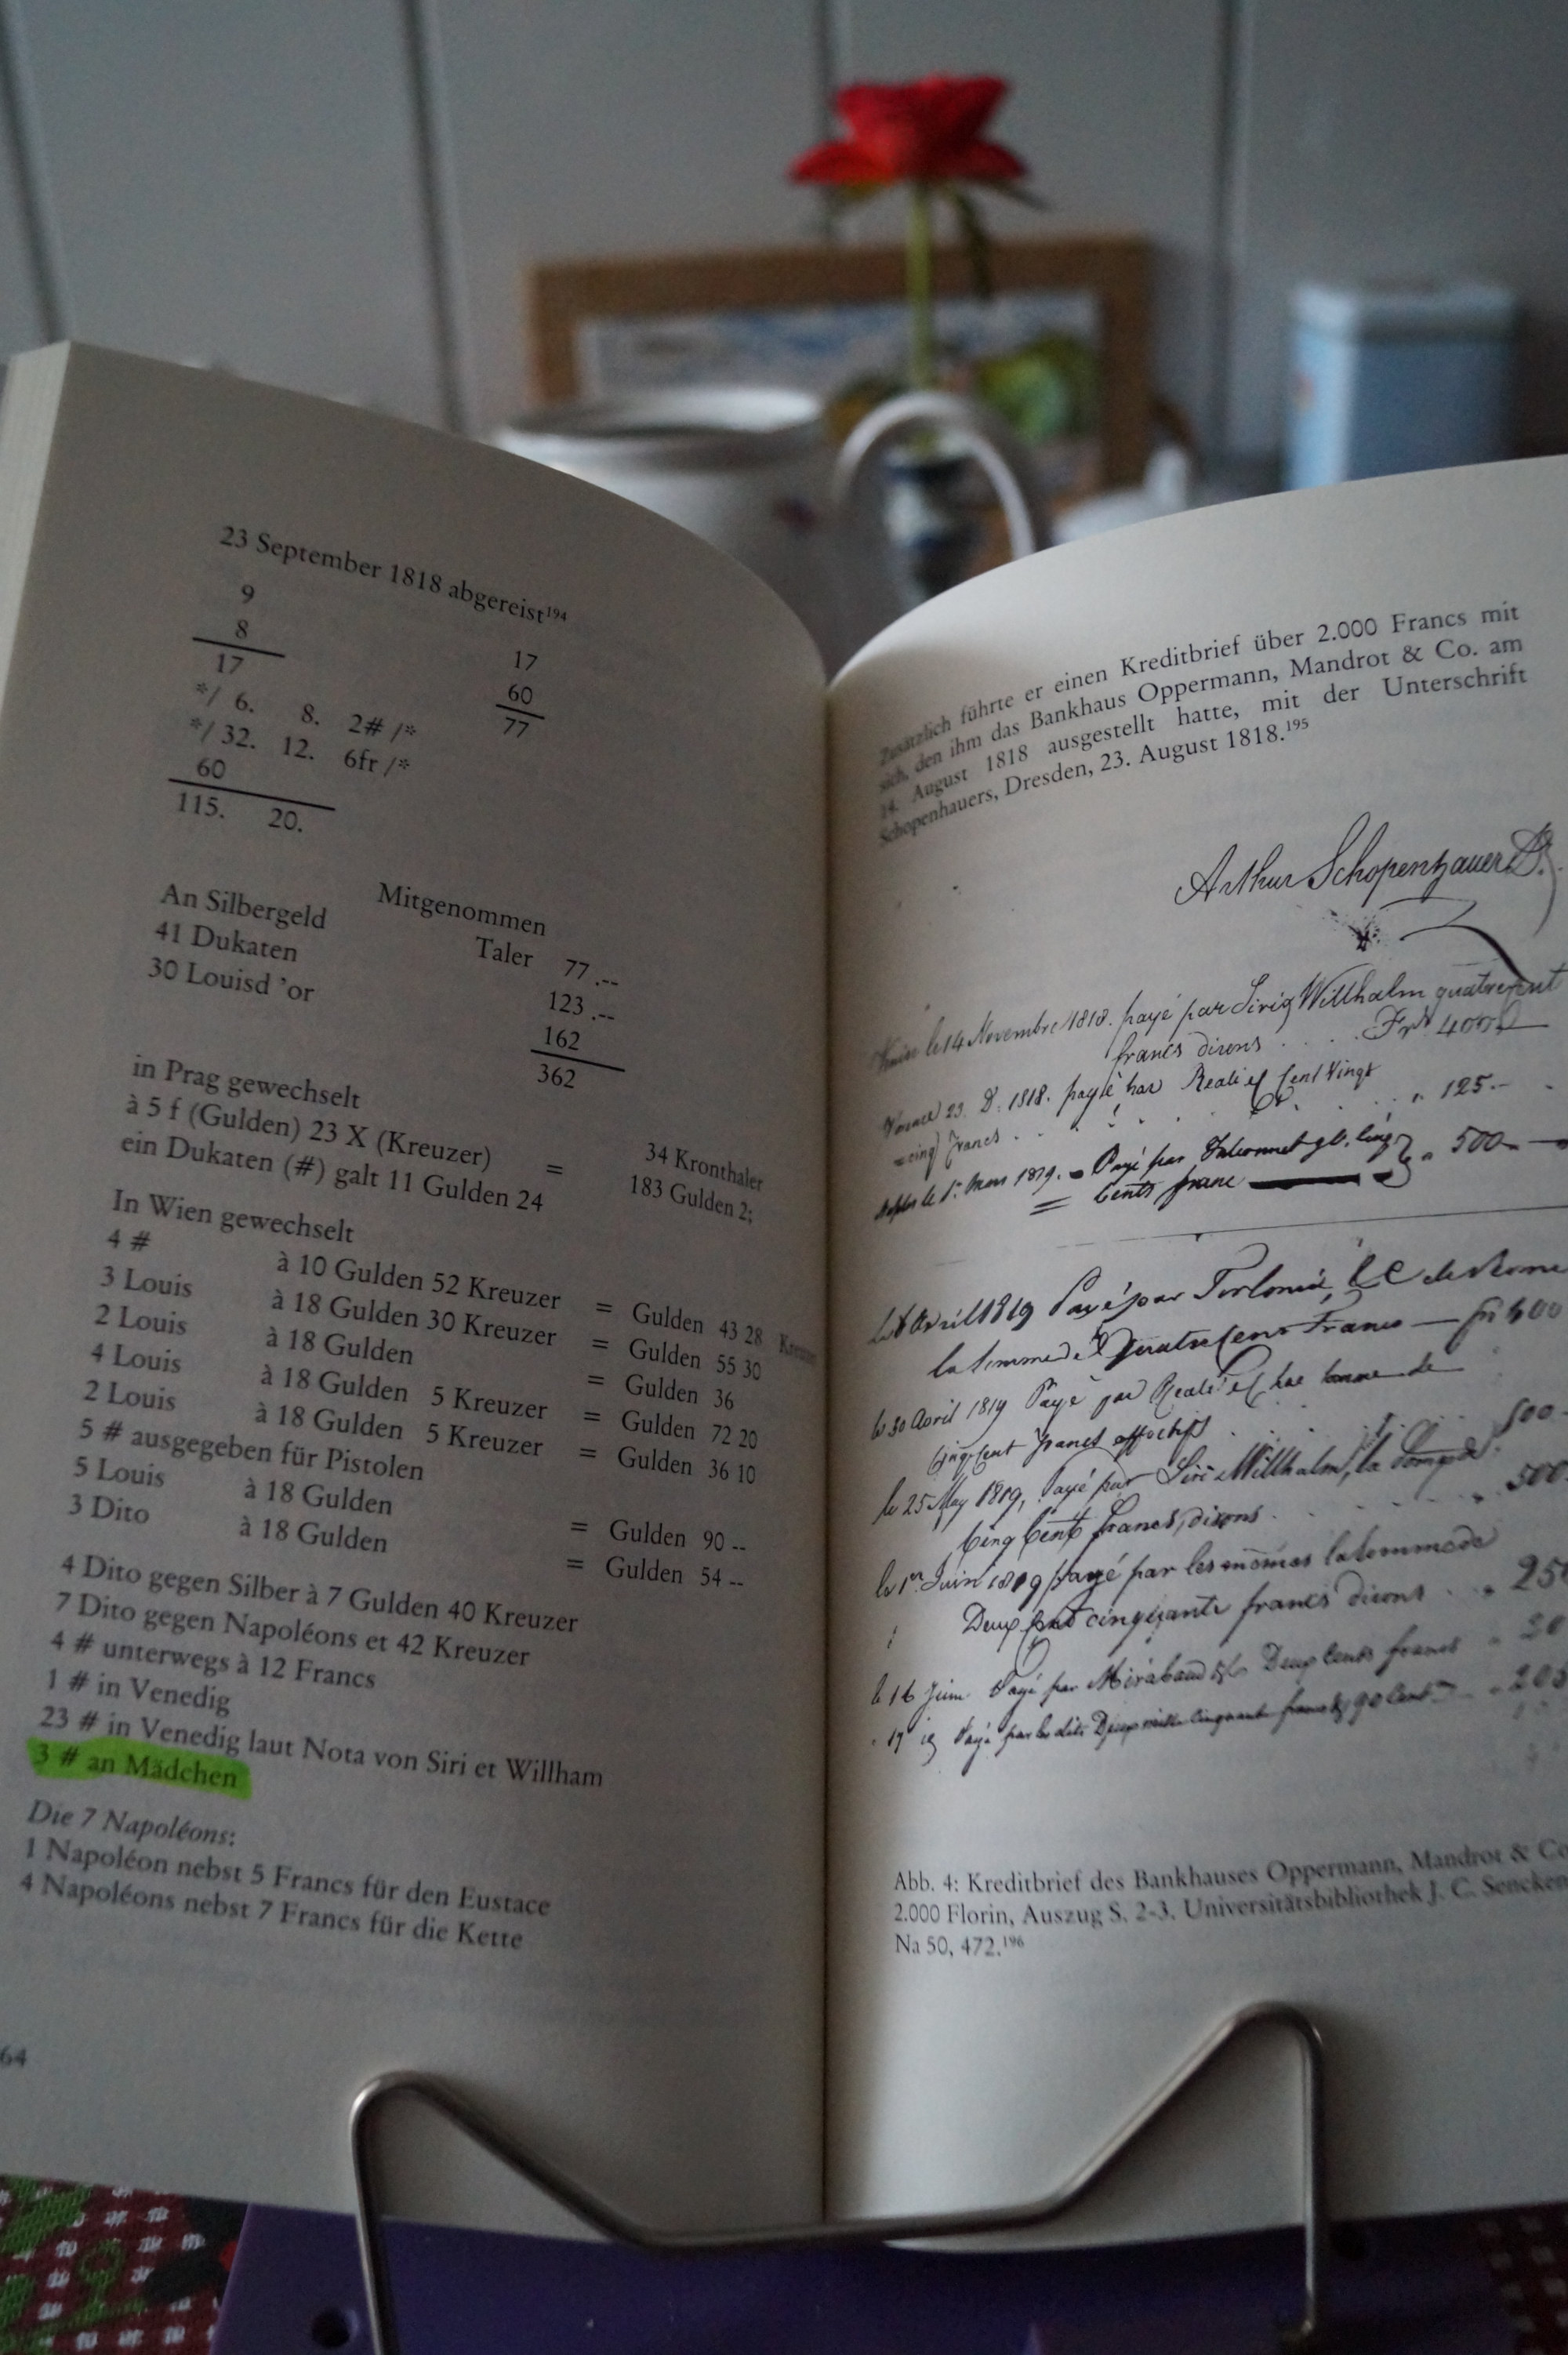 23 September 1818 abgereist¹⁹⁴
9
8
17
*/ 6. 8. 2# /*
*/ 32. 12. 6fr /*
60
115. 20.
17
60
77
Mitgenommen
An Silbergeld Taler 77.--
41 Dukaten 123.--
30 Louisd ’or 162
362
in Prag gewechselt
à 5 f (Gulden) 23 X (Kreuzer) = 34 Kronthaler
ein Dukaten (#) galt 11 Gulden 24 183 Gulden 2;
In Wien gewechselt
4 # à 10 Gulden 52 Kreuzer = Gulden 43 28 Kreuzer
3 Louis à 18 Gulden 30 Kreuzer = Gulden 55 30
2 Louis à 18 Gulden = Gulden 36
4 Louis à 18 Gulden 5 Kreuzer = Gulden 72 20
2 Louis à 18 Gulden 5 Kreuzer = Gulden 36 10
5 # ausgegeben für Pistolen
5 Louis à 18 Gulden = Gulden 90 --
3 Dito à 18 Gulden = Gulden 54 --
4 Dito gegen Silber à 7 Gulden 40 Kreuzer
7 Dito gegen Napoléons et 42 Kreuzer
4 # unterwegs à 12 Francs
1 # in Venedig
23 # in Venedig laut Nota von Siri et Willham
3 # an Mädchen
Die 7 Napoléons:
1 Napoléon nebst 5 Francs für den Eustace
4 Napoléons nebst 7 Francs für die Kette
64
Zusätzlich führte er einen Kreditbrief über 2.000 Francs mit
sich, den ihm das Bankhaus Oppermann, Mandrot & Co. am
14. August 1818 ausgestellt hatte, mit der Unterschrift
Schopenhauers, Dresden, 23. August 1818.¹⁹⁵
Arthur Schopenhauer
le 14 Novembre 1818. payé par Siri & Willhalm quatrecent
francs disons . . . . Frs 400
23. 1818. payé par Reali Cent Vingt
cinq francs . . . . . " 125.-
le 1r. Mars 1819. Payé par Falconnet cinq
Cents franc " 500
le 8 Avril 1819 Payé par Torlonia de Rome
la Somme de Quatre Cent Francs
le 30 Avril 1819 Payé par Reali la somme de
Cinq Cent francs effectifs 500
le 25 May 1819, Payé par Siri & Willhalm, la somme de
Cinq Cent francs, disons . . . . " 500
le 1er. Juin 1819 payé par les mêmes la Somme de
Deux Cent cinquante francs disons . . . " 250
le 16 Juin Payé par Mirabaud Deux Cents francs
" 19 Payé par les dits
Abb. 4: Kreditbrief des Bankhauses Oppermann, Mandrot & Co
2.000 Florin, Auszug S. 2-3. Universitätsbibliothek J. C. Sencken
Na 50, 472.¹⁹⁶